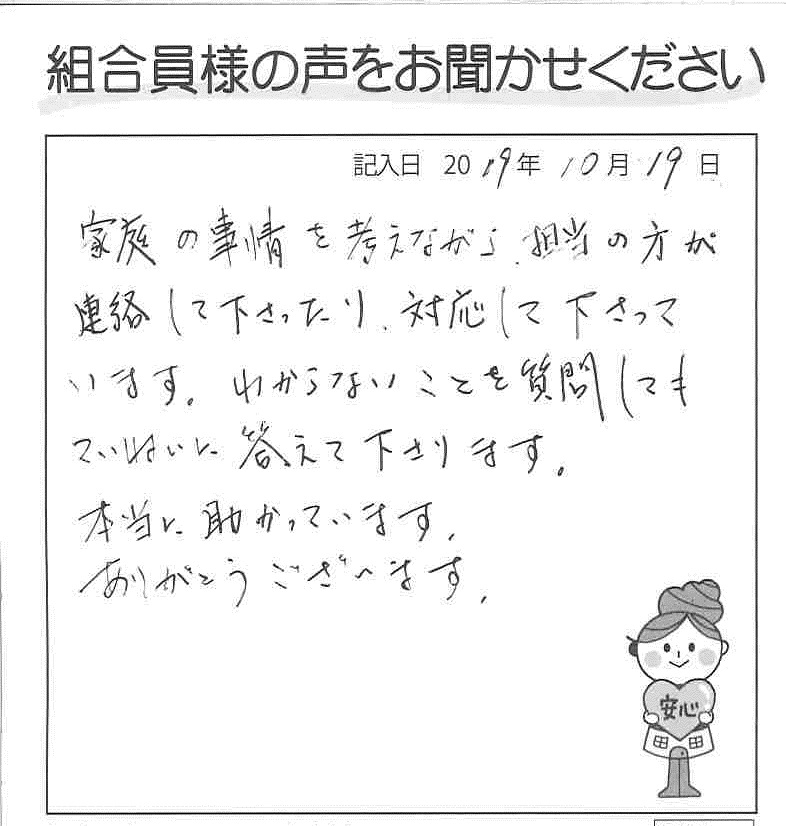 組合員様の声をお聞かせください
記入日 2019年10月19日
家庭の事情を考えながら、担当の方が
連絡して下さったり、対応して下さって
います。わからないことを質問しても
ていねいに答えて下さります。
本当に助かっています。
ありがとうございます。
安心